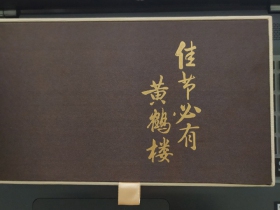 佳节必有
黄鹤楼